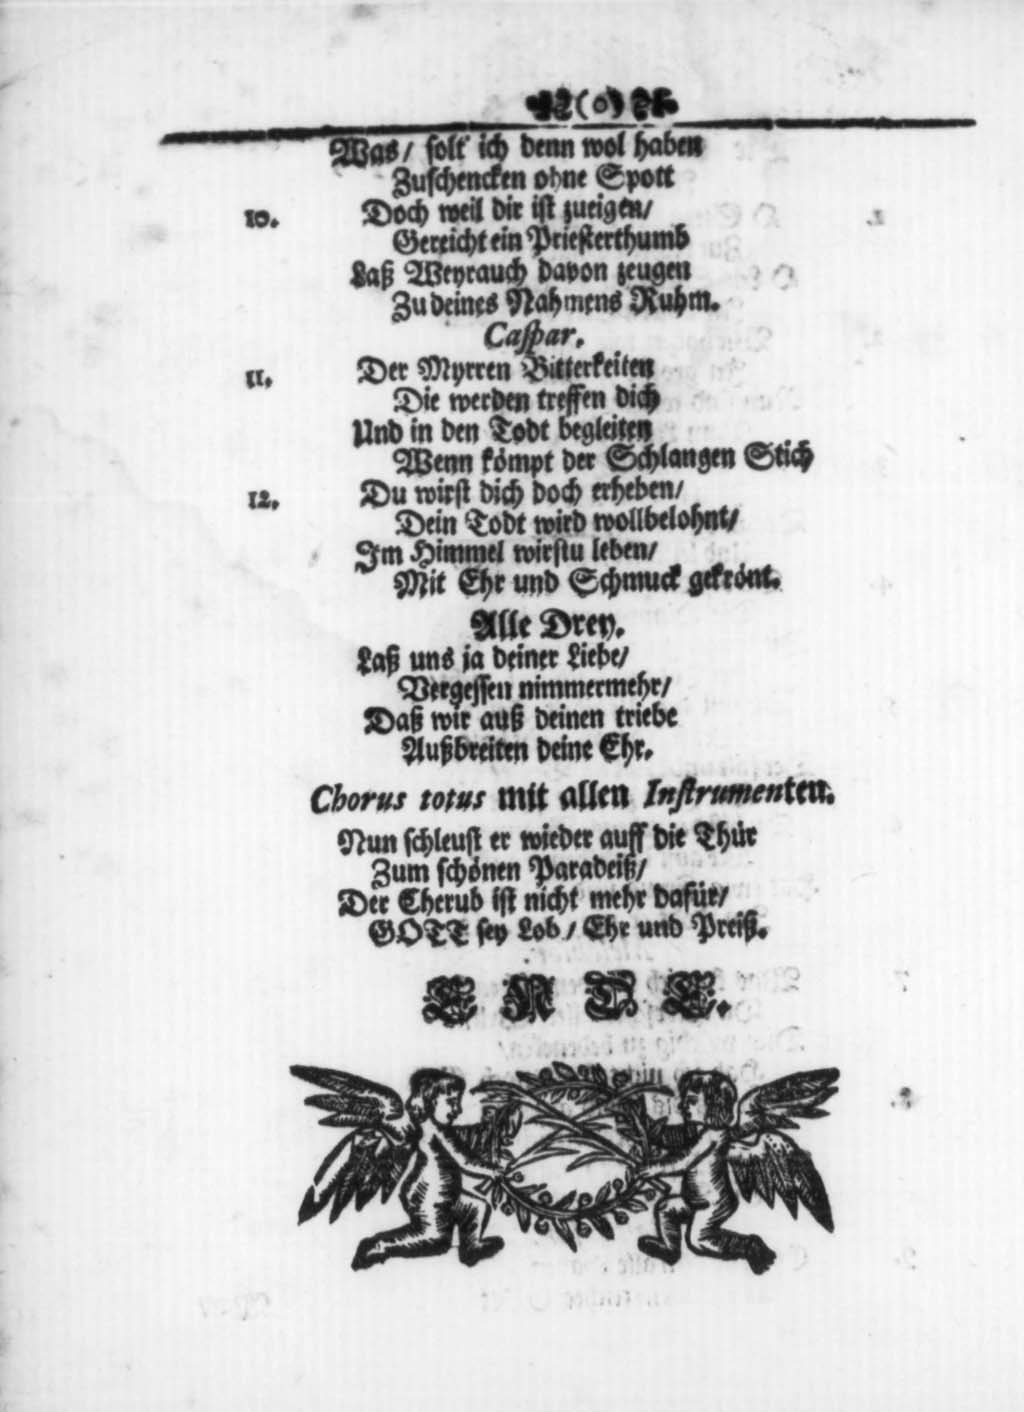 (o)
Was/ solt ich denn wol haben
Zuschencken ohne Spott
10. Doch weil dir ist zueigen/
Gereicht ein Priesterthumb
Laß Weyrauch davon zeugen
Zu deines Nahmens Ruhm.
Caspar.
11. Der Myrren Bitterkeiten
Die werden treffen dich
Und in den Todt begleiten
Wenn kömpt der Schlangen Stich
12. Du wirst dich doch erheben/
Dein Todt wird wollbelohnt/
Im Himmel wirstu leben/
Mit Ehr und Schmuck gekrönt.
Alle Drey.
Laß uns ja deiner Liebe/
Vergessen nimmermehr/
Daß wir auß deinen triebe
Außbreiten deine Ehr.
Chorus totus mit allen Instrumenten.
Nun schleust er wieder auff die Thür
Zum schönen Paradeiß/
Der Cherub ist nicht mehr dafür/
GOTT sey Lob/ Ehr und Preiß.
E N D E.